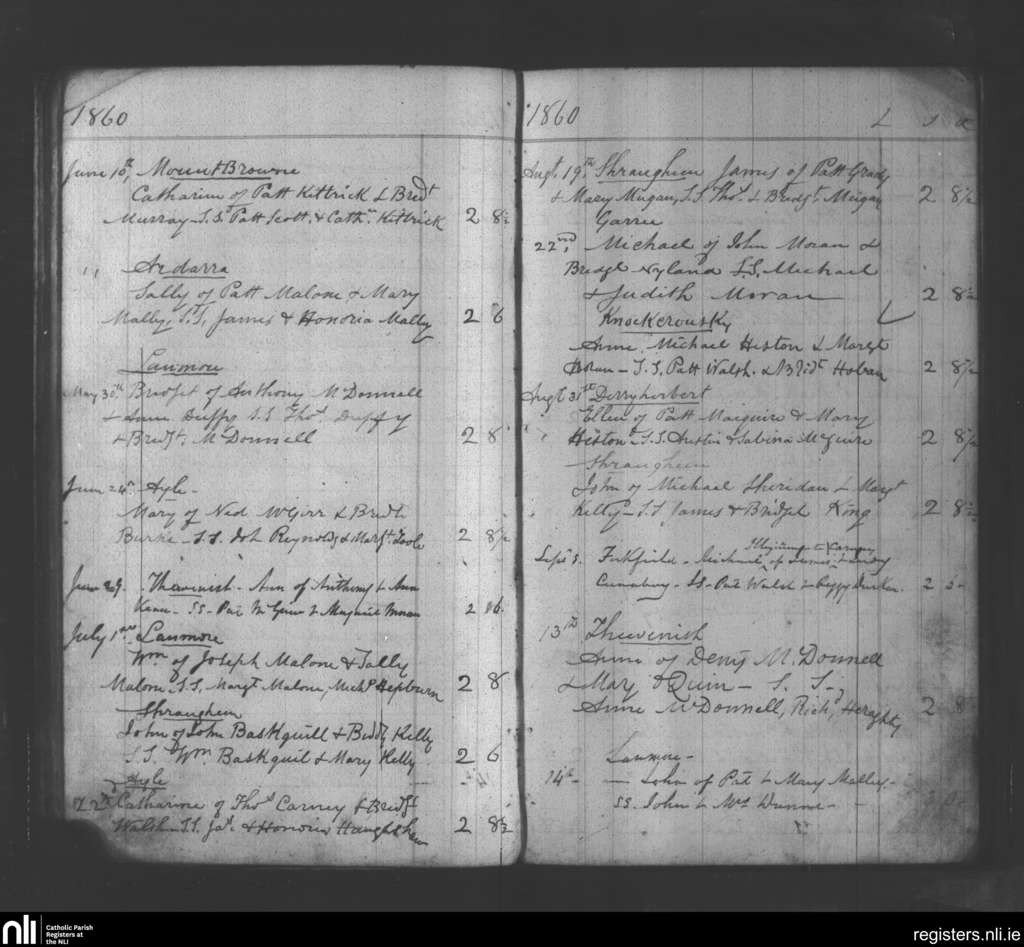 1860
June 10th, Mount Browne
Catharine of Patt Kittrick & Bredt
Murray - S.S. Patt Scott, & Cathn. Kittrick 2 8½
" Ardarra
Sally of Patt Malone & Mary
Mally, S.S, James & Honoria Mally 2 6
Lanmore
May 30th Bridget of Anthony McDonnell
& Ann Duffy S.S Thos. Duffy
& Bredgt. McDonnell 2 8
June 24th Ayle -
Mary of Ned McGirr & Bredt
Burke - S.S. Joh Reynolds & Margt Toole 2 8½
June 29. Thevenish - Ann of Anthony & Ann
Kean - SS - Pat McGuire & Margaret Moran 2
July 1st. Lanmore
Wm. of Joseph Malone & Sally
Malone S.S, Margt Malone, Michl. Hepburn 2 8
Shraugheen
John of John Baskquill & Bridgt Kelly
S.S. Wm. Baskquil & Mary Kelly 2 6
Ayle
22nd Catharine of Thos. Carney & Bredgt
Walsh - S.S. Jas. & Honoria 2 8½
1860 L s d
Augt. 19th, Shraugheen James of Patt Grady
& Mary Mugan, S.S. Thos. & Bredgt. Mugan 2 8½
Garrie
22nd, Michael of John Moran &
Bredgt Nyland S.S, Michael
& Judith Moran 2 8½
Knockerousky
Anne, Michael Heston & Margt
Horan - S.S, Patt Walsh. & Bridt Hoban 2 8½
Augt 31st Derryherbert
Ellen of Patt Maguire & Mary
" Heston - S.S. Austin & Sabina McGuire 2 8½
Shraugheen
John of Michael Sheridan & Margt
" Kelly - S.S James & Bridget King 2 8½
Sept 3. - Michael of James &
- SS - Pat Walsh & Peggy Durkan 2 5 -
13th Thevenish
Anne of Deny McDonnell
& Mary Quin - S. S -,
Anne McDonnell, Richd. Heraghty 2 8
Lanmore -
14th - John of Pat & Mary Malley -
SS. John & -
nli Catholic Parish
Registers at
the NLI
registers.nli.ie